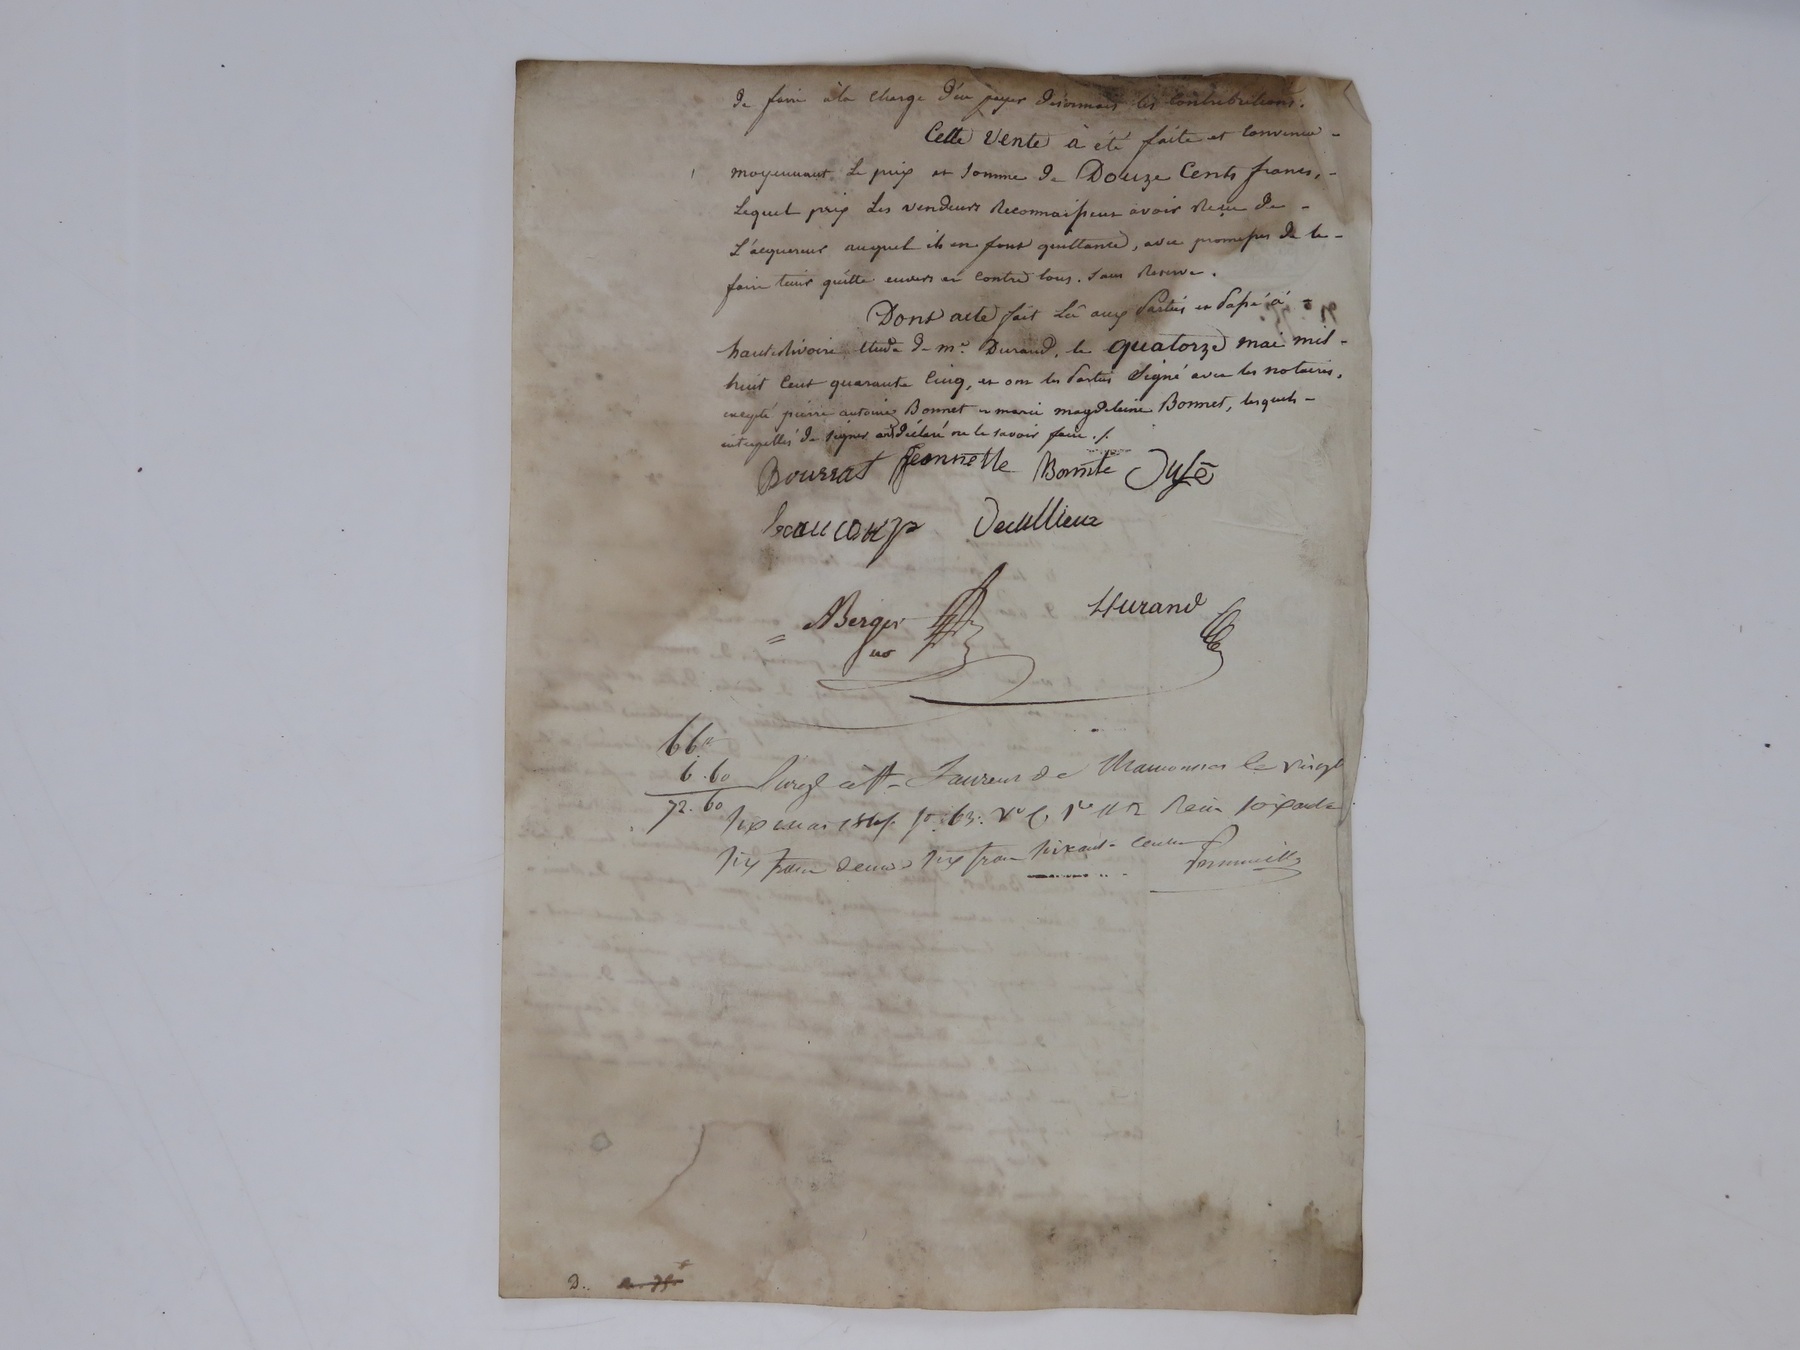 de faire à la charge d'en payer désormais les contributions.
Cette Vente à été faite et convenue -
moyennant le prix et somme de Douze Cents francs, -
Lequel prix Les vendeurs Reconnaissent avoir Reçu de -
L'acquereur auquel ils en font quittance, avec promesses de le -
faire tenir quitte envers et contre tous. Sans Reserve.
Dont acte fait Lû aux Parties et Passé à
hauterivoire étude de me. Durand, le quatorze mai mil -
huit Cent quarante Cinq, et ont les Parties Signé avec les notaires,
excepté pierre antoine Bonnet et marie magdeleine Bonnet, lesquels -
interpellés de signer ont déclaré ne le savoir faire ./.
Bourrat Jeannette Bonnite
beaucoup
ABerger Durand
no
66"
6.60
72.60
Enregé à St Laurent de Chamousset le vingt
six mai 1845 fo. 63. Vo C. Reçu soixante
six francs decime six francs soixante centimes
D.